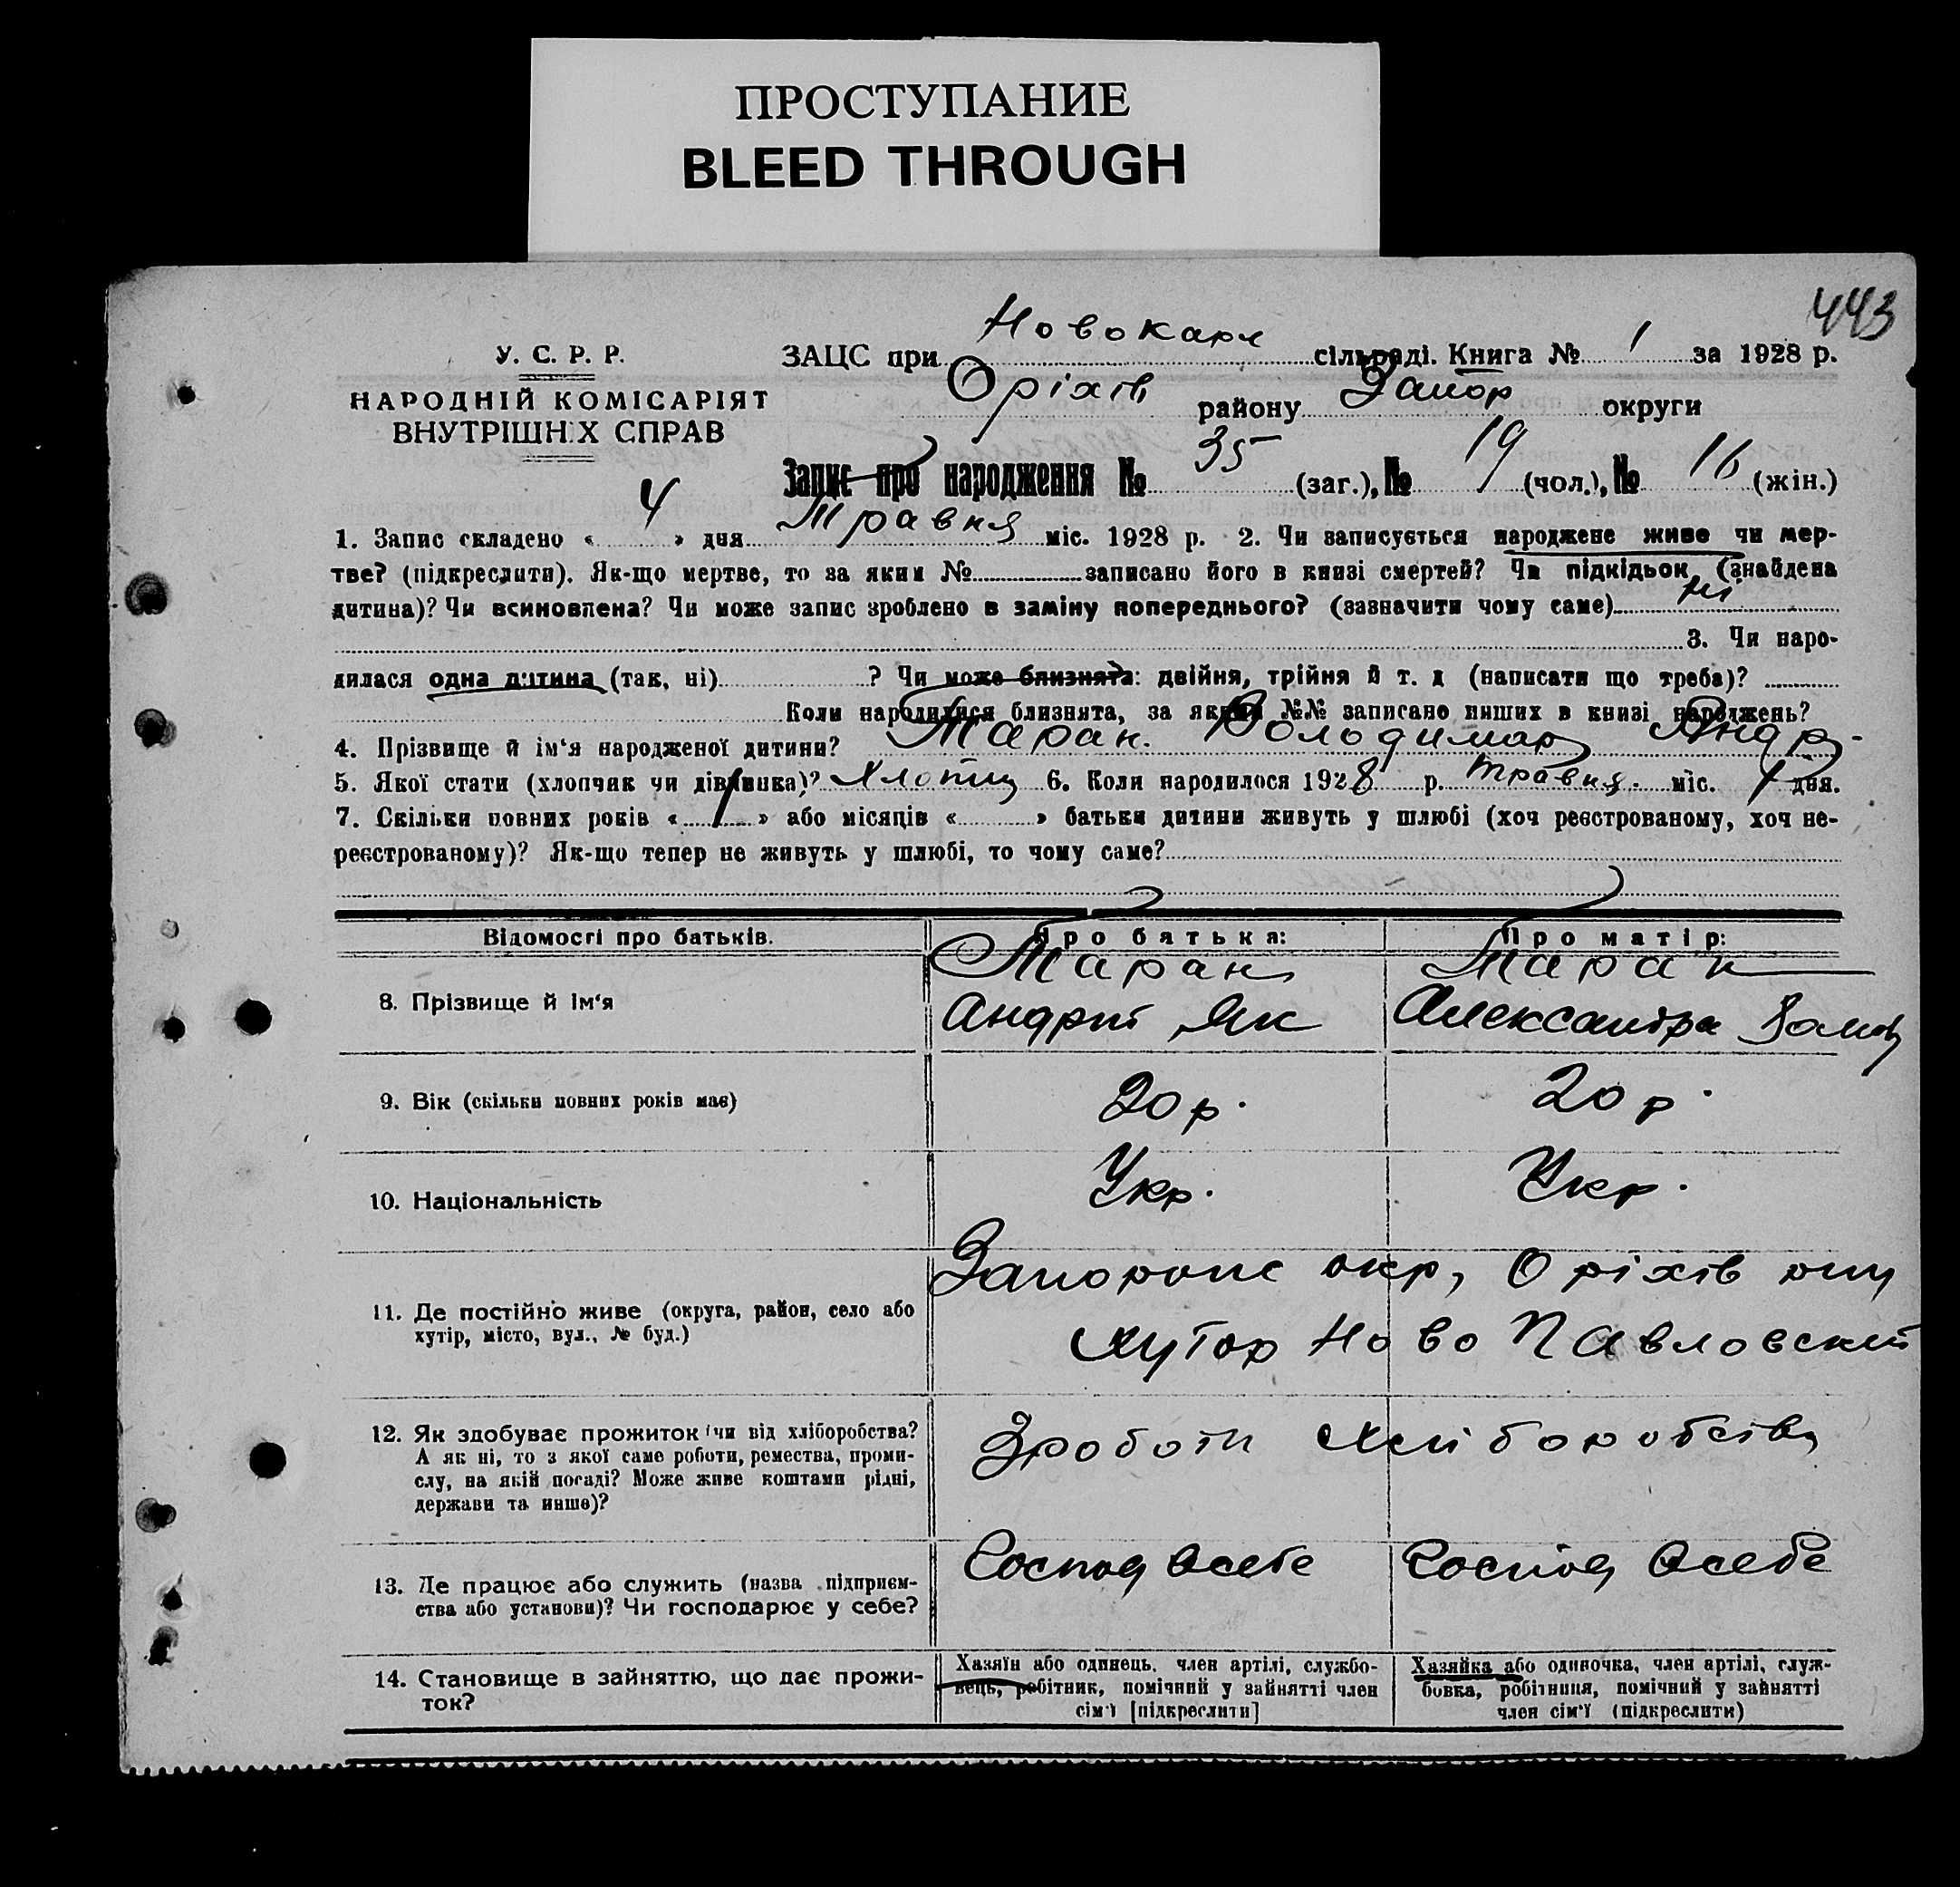 ПРОСТУПАНИЕ
BLEED THROUGH
443
У. С. Р. Р.
НАРОДНІЙ КОМІСАРІЯТ
ВНУТРІШНІХ СПРАВ
ЗАЦС при Новокарл сільраді. Книга № 1 за 1928 р.
Оріхів району Запор округи
Запис про народження № 35 (заг.), № 19 (чол.), № 16 (жін.)
1. Запис складено « 4 » дня Травня міс. 1928 р. 2. Чи записується народжене живе чи мер-
тве? (підкреслити). Як-що мертве, то за яким № записано його в книзі смертей? Чи підкідьок (знайдена
дитина)? Чи всиновлена? Чи може запис зроблено в заміну попереднього? (зазначити чому саме) ні
3. Чи наро-
дилася одна дитина (так, ні) ? Чи може близнята: двійня, трійня й т. д (написати що треба)?
Коли народилися близнята, за якими №№ записано инших в книзі народжень?
4. Прізвище й ім‘я народженої дитини? Таран. Володимар Андр.
5. Якої стати (хлопчик чи дівчинка)? Хлопиц 6. Коли народилося 1928 р. травня. міс. 1 дня.
7. Скільки повних років « 1 » або місяців « » батьки дитини живуть у шлюбі (хоч реєстрованому, хоч не-
реєстрованому)? Як-що тепер не живуть у шлюбі, то чому саме?
Відомості про батьків. Про батька: Про матір:
8. Прізвище й ім‘я
Таран Таран
Андрій Як Александра
9. Вік (скільки повних років має) 20 р. 20 р.
10. Національність Укр. Укр.
11. Де постійно живе (округа, район, село або
хутір, місто, вул., № буд.)
окр, Оріхів
Хутор Ново Павловский
12. Як здобуває прожиток (чи від хліборобства?
А як ні, то з якої саме роботи, ремества, проми-
слу, на якій посаді? Може живе коштами рідні,
держави та инше)?
Зроботи хлиборобства
13. Де працює або служить (назва підприєм-
ства або установи)? Чи господарює у себе?
Господ Осебе Господ Осебе
14. Становище в зайняттю, що дає прожи-
ток?
Хазяїн або одинець, член артілі, службо-
вець, робітник, помічний у зайнятті член
сім‘ї [підкреслити]
Хазяйка або одиночка, член артілі, служ-
бовка, робітниця, помічний у зайнятті
член сім‘ї (підкреслити)